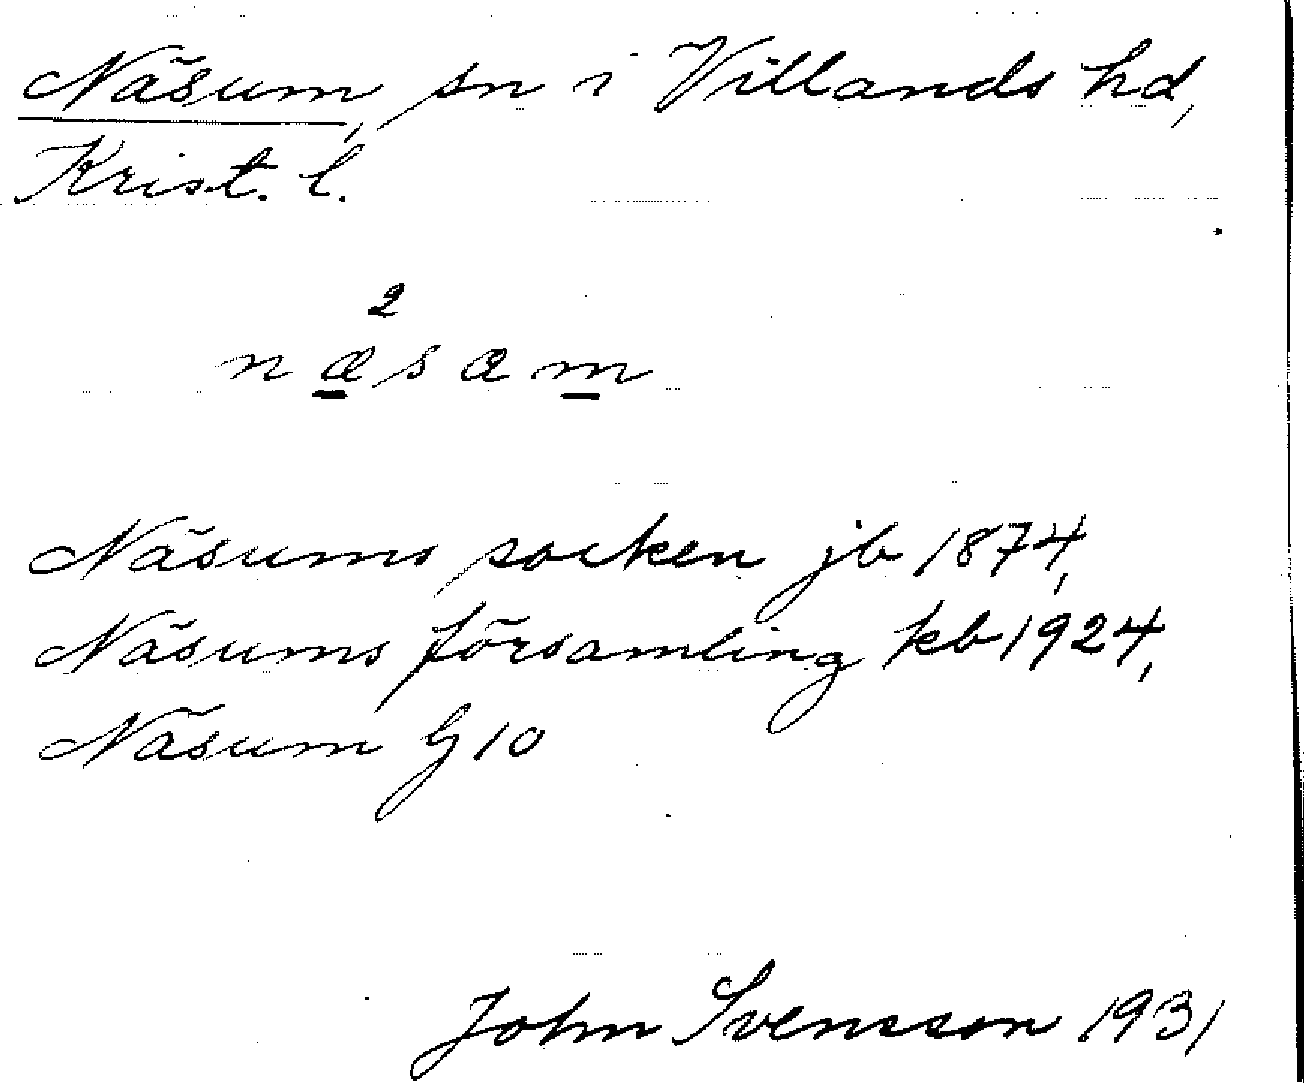 Näsum, sn i Villands hd,
Krist. l.
2
næsam
Näsums socken jb 1874,
Näsums församling kb 1924,
Näsum G 10
John Svensson 1931